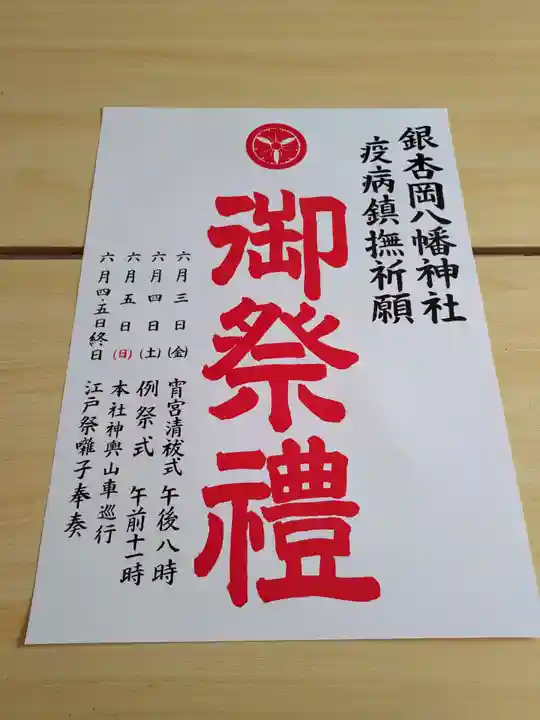 銀杏岡八幡神社
疫病鎮撫祈願
御祭禮
六月三日(金) 宵宮清祓式 午後八時
六月四日(土) 例祭式 午前十一時
六月五日(日) 本社神輿山車巡行
六月四・五日終日 江戸祭囃子奉奏